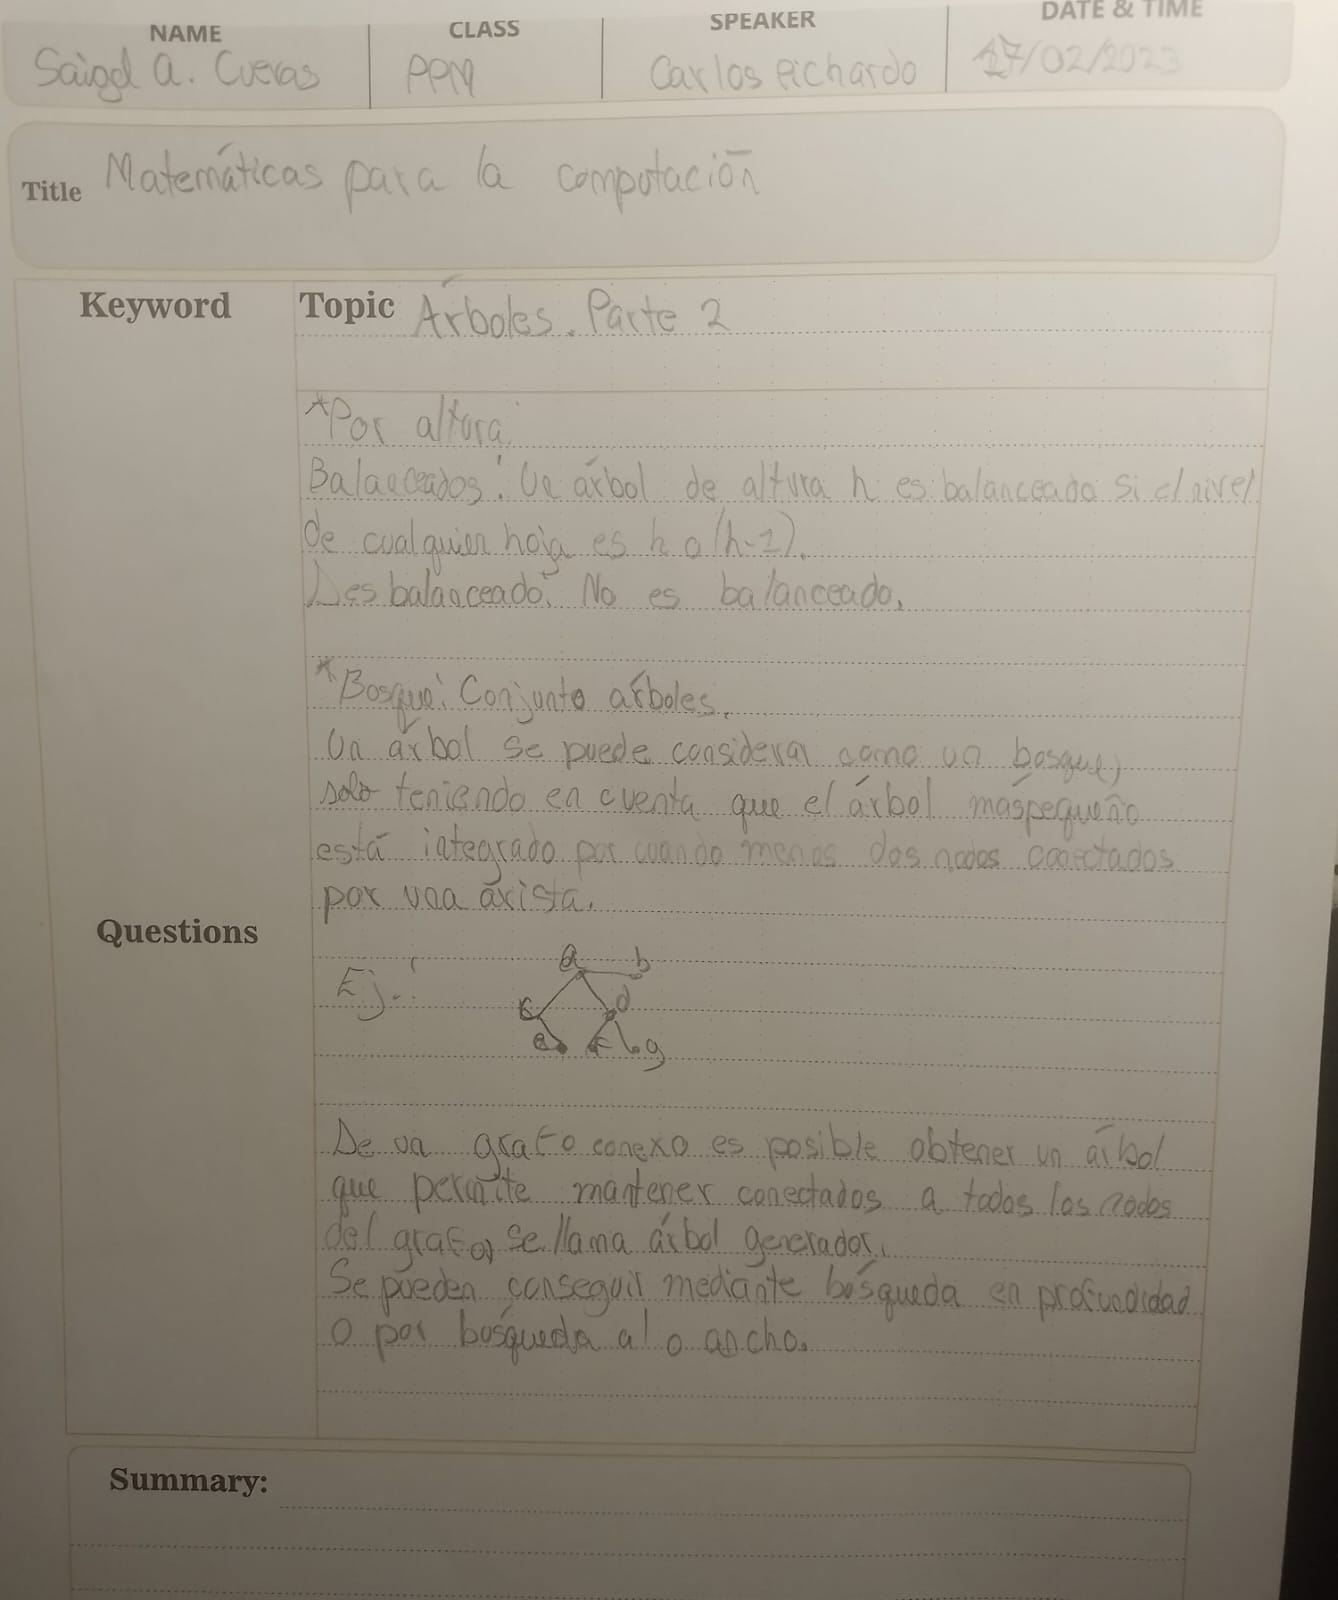 NAME
CLASS
SPEAKER
DATE & TIME
Saigel A. Cuevas
PPM
Carlos Pichardo
17/02/2023
Title Matemáticas para la computación
Keyword
Topic Árboles. Parte 2
*Por altura:
Balanceados: Un árbol de altura h es balanceado si el nivel
de cualquier hoja es h o (h-1).
Desbalanceado: No es balanceado.
*Bosque: Conjunto árboles.
Un árbol se puede considerar como un bosque,
solo teniendo en cuenta que el árbol más pequeño
está integrado por cuando menos dos nodos conectados
por una árista.
Questions
Ej.:
a b
c d
e f g
De un grafo conexo es posible obtener un árbol
que permite mantener conectados a todos los nodos
del grafo, se llama árbol generador.
Se pueden conseguir mediante búsqueda en profundidad
o por búsqueda a lo ancho.
Summary: